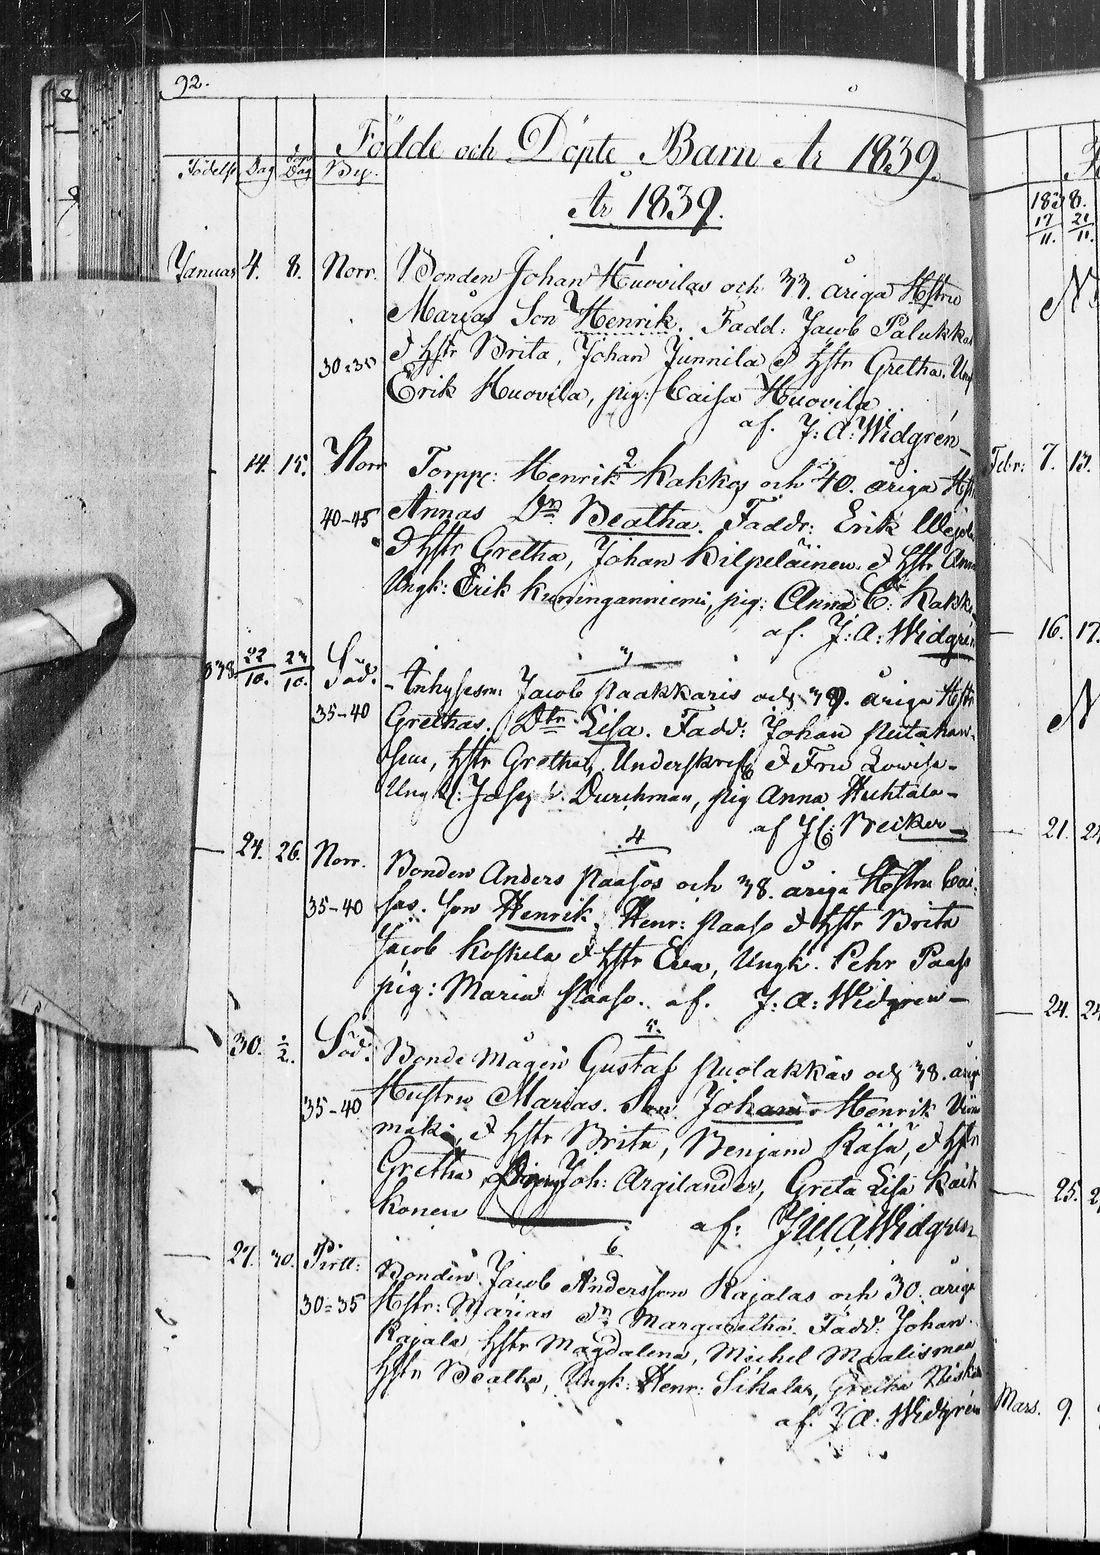 92.
Födde och Döpte Barn År 1839.
Födelse Dag Döp. Dag By.
År 1839.
1
Januari 4. 8. Norr. Bonden Johan Huovilas och 33. åriga Hstru
Marias Son Henrik. Fadd: Jacob Palukka
30-35 & hstr Brita, Johan Junnila & hstr Gretha. Ung
Erik Huovila, pig: Caisa Huovila
af. J: A: Widgrén
2
14. 15. Norr Torpp: Henrik Kakkos och 40. åriga Hst
40-45 Annas Dn Beatha. Faddr: Erik Wejo
& hstr Gretha, Johan Kilpeläinen & hstr Anna
Ungk: Erik Kuninganniemi, pig: Anna C: Kakk
af. J: A: Widgrén
3
838 22/10. 23/10. Söd. Inhysesm: Jacob Paakkaris och 39. åriga Hstr
35-40 Grethas. Dtr Lisa. Fadd: Johan
hstr Gretha, & Fru Lowisa
Ungk: Durchman, pig Anna Huhtala
af Becker
4
24. 26. Norr. Bonden Anders Paasos och 38. åriga Hstru Cai-
35-40 sas. Son Henrik. Henr: Paaso & hstr Brita
Jacob Koskela & hstr Eva, Ungk. Pehr Paaso
pig: Maria Paaso. af. J: A: Widgren
5.
30. 2/2. Söd. Bonde mågen Gustaf Puolakkas och 38. årig
35-40 Hustru Marias. Son Johan Henrik
mäki, & hstr Brita, Benjam Räsä, & hstr
Gretha Joh: Argilander, Greta Lisa Kaik
konen af: Widgren
6
27. 30. Pirtt: Bonden Jacob Andersson Rajalas och 30. åriga
30=35 Hstr: Marias dn Margaretha. Fadd: Johan
Rajala hstr Magdalena, Michel Maalismaa
hstr Beatha, Ungk: Henr: Sikala, Gretha Niska
af J: A: Widgrén
1838.
17/11. 21/11.
N
Febr: 7. 13.
16. 17.
N
21. 24
24. 24
25. 2
Mars. 9.